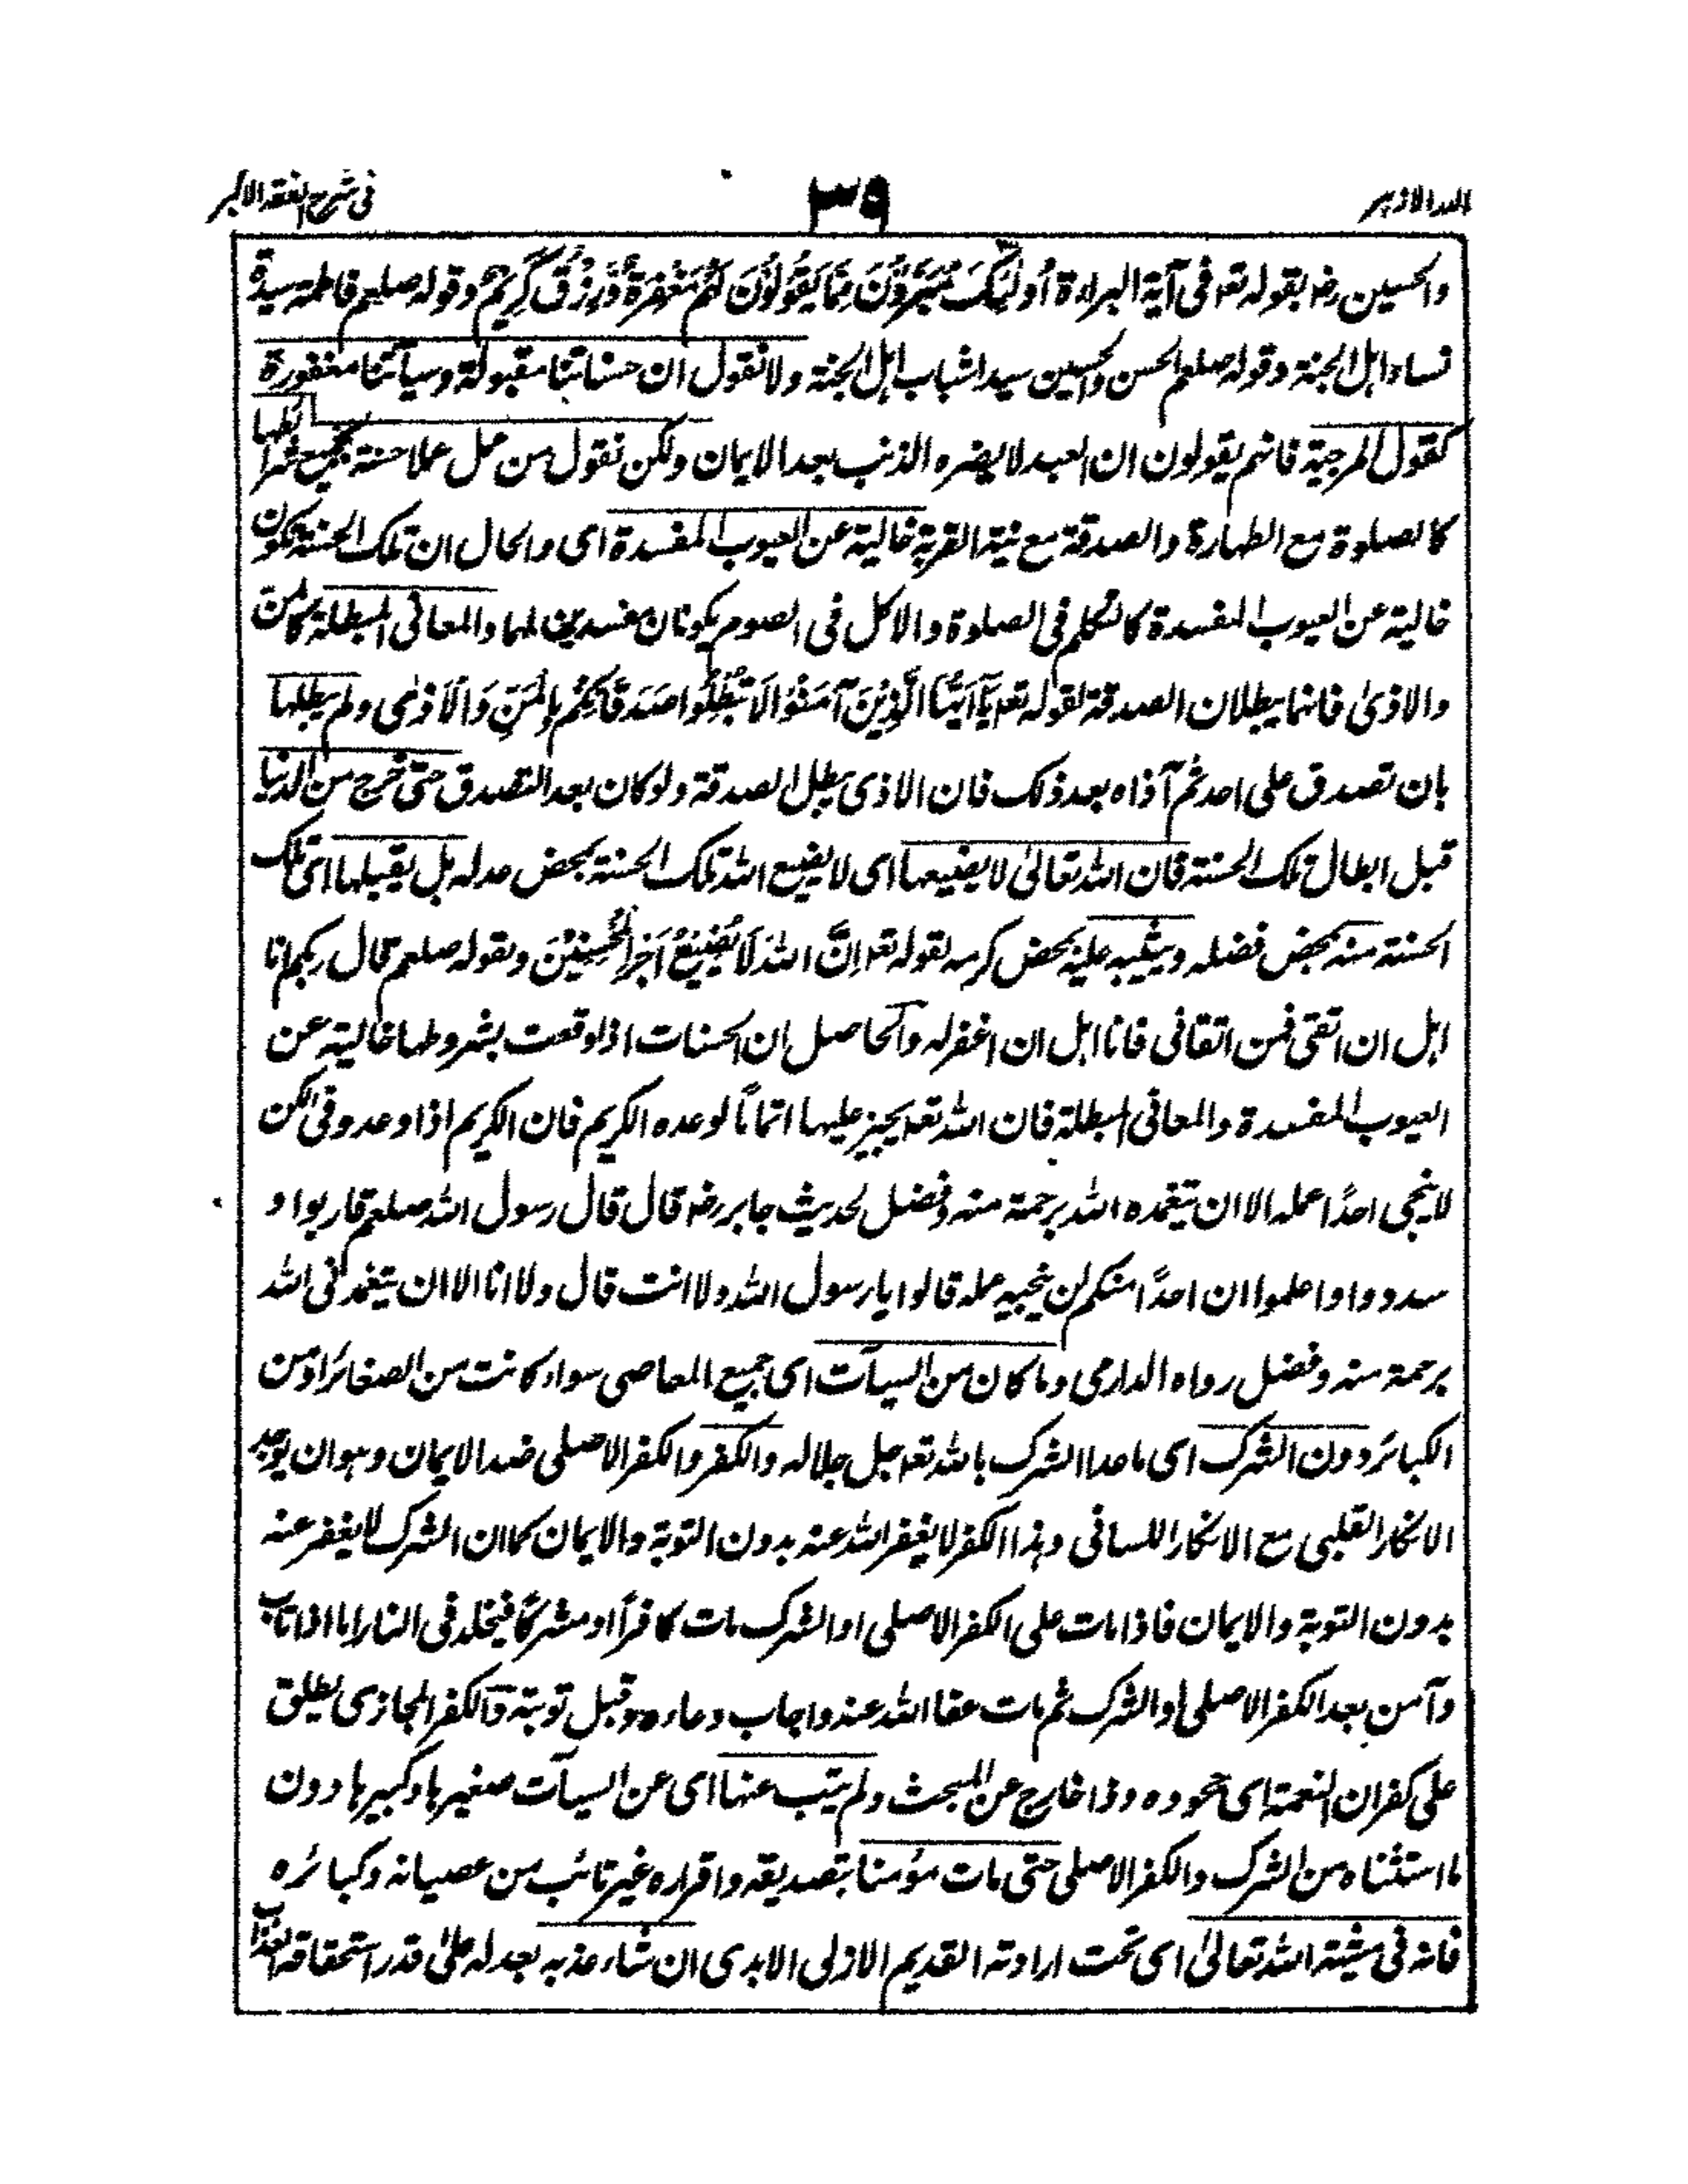 البدر الازہر
٣٩
فی شرح الفقہ الاکبر
والحسین رضہ بقولہ تعہ فی آیۃ البراءۃ اُولٰئِكَ مُبَرَّؤُنَ مِمَّا يَقُوْلُوْنَ لَهُمْ مَغْفِرَةٌ وَّرِزْقٌ كَرِيْمٌ وقولہ صلعم فاطمۃ سیدۃ
نساء اہل الجنۃ وقولہ صلعم الحسن والحسین سیدا شباب اہل الجنۃ ولا نقول ان حسناتنا مقبولۃ وسیآتنا مغفورۃ
کقول المرجیۃ فانہم یقولون ان العبد لا یضرہ الذنب بعد الایمان ولکن نقول من عمل عملا حسنۃ بجمیع شرائطہا
کالصلوۃ مع الطہارۃ والصدقۃ مع نیۃ القربۃ خالیۃ عن العیوب المفسدۃ ای والحال ان تلک الحسنۃ تکون
خالیۃ عن العیوب المفسدۃ کالتکلم فی الصلوۃ والاکل فی الصوم یکونان مفسدین لہما والمعانی المبطلۃ کالمن
والاذیٰ فانہما یبطلان الصدقۃ لقولہ تعہ يَآ اَيُّهَا الَّذِيْنَ آمَنُوْا لَا تُبْطِلُوْا صَدَقَاتِكُمْ بِالْمَنِّ وَالْاَذٰى ولم یبطلہا
بان تصدق علی احد ثم آذاہ بعد ذلک فان الاذی یبطل الصدقۃ ولو کان بعد التصدق حتی خرج من الدنیا
قبل ابطال تلک الحسنۃ فان اللہ تعالیٰ لا یضیعہا ای لا یضیع اللہ تلک الحسنۃ بمحض عدلہ بل یقبلہا ای تلک
الحسنۃ منہ بمحض فضلہ ویثیبہ علیہ بمحض کرمہ لقولہ تعہ اِنَّ اللهَ لَا يُضِيْعُ اَجْرَ الْمُحْسِنِيْنَ وبقولہ صلعم قال ربکم انا
اہل ان اتقی فمن اتقانی فانا اہل ان اغفر لہ والحاصل ان الحسنات اذا وقعت بشروطہا خالیۃ عن
العیوب المفسدۃ والمعانی المبطلۃ فان اللہ تعہ یجیز علیہا اتماما لوعدہ الکریم فان الکریم اذا وعد وفی لکن
لا ینجی احدًا عملہ الا ان یتغمدہ اللہ برحمۃ منہ وفضل لحدیث جابر رضہ قال قال رسول اللہ صلعم قاربوا و
سددوا واعلموا ان احدًا منکم لن ینجیہ عملہ قالوا یا رسول اللہ ولا انت قال ولا انا الا ان یتغمدنی اللہ
برحمۃ منہ وفضل رواہ الدارمی وما کان من السیآت ای جمیع المعاصی سواء کانت من الصغائر او من
الکبائر دون الشرک ای ما عدا الشرک باللہ تعہ جل جلالہ والکفر والکفر الاصلی ضد الایمان وہو ان یوجد
الانکار القلبی مع الانکار اللسانی وہذا الکفر لا یغفر اللہ عنہ بدون التوبۃ والایمان کما ان الشرک لا یغفر عنہ
بدون التوبۃ والایمان فاذا مات علی الکفر الاصلی او الشرک مات کافرًا او مشرکًا فیخلد فی النار اما اذا تاب
وآمن بعد الکفر الاصلی او الشرک ثم مات عفا اللہ عنہ واجاب دعاءہ وقبل توبتہ والکفر المجازی یطلق
علی کفران النعمۃ ای جحودہ وذا خارج عن المبحث ولم یتب عنہا ای عن السیآت صغیرہا وکبیرہا دون
ما استثناہ من الشرک والکفر الاصلی حتی مات مؤمنا بتصدیقہ واقرارہ غیر تائب من عصیانہ وکبائرہ
فانہ فی مشیۃ اللہ تعالیٰ ای تحت ارادتہ القدیم الازلی الابدی ان شاء عذبہ بعدلہ علیٰ قدر استحقاقہ العذاب